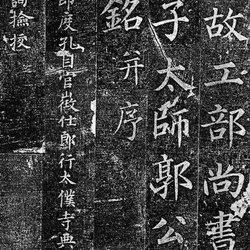 故工部尚書
子太師郭公
銘并序
節度孔目官徵仕郎行太僕寺典
詞撿挍